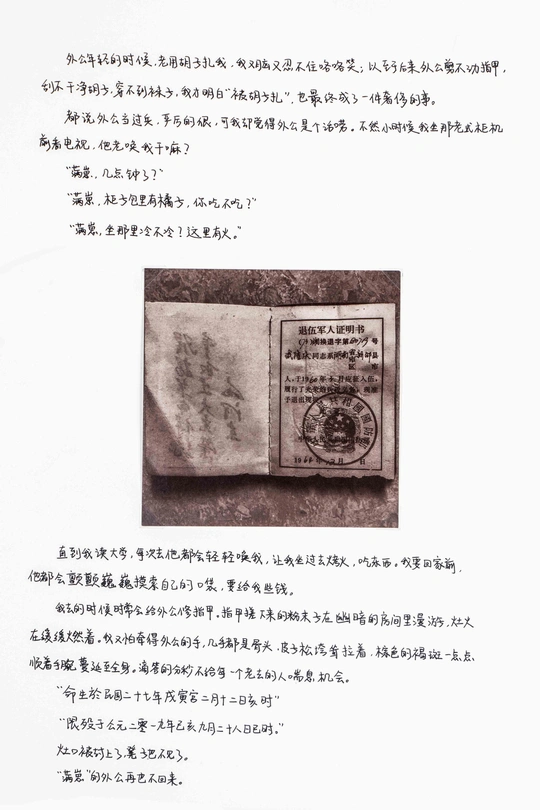 外公年轻的时候，老用胡子扎我，我又痛又忍不住咯咯笑；以至于后来外公剪不动指甲，
刮不干净胡子，穿不到袜子，我才明白“被胡子扎”，也最终成了一件奢侈的事。
都说外公当过兵，严厉的很，可我却觉得外公是个话唠。不然小时候我坐那老式柜机
前看电视，他老唤我干嘛？
“满崽，几点钟了？”
“满崽，柜子包里有橘子，你吃不吃？”
“满崽，坐那里冷不冷？这里有火。”
退伍军人证明书
换退字第 号
同志系湖南省新邵县
人，于1960年 月应征入伍，
履行了光荣的兵役义务，现准
予退出现役。
中华人民共和国国防部
196 年 月 日
直到我读大学，每次去他都会轻轻唤我，让我坐过去烧火，吃东西。我要回家前，
他都会颤颤巍巍摸索自己的口袋，要给我些钱。
我去的时候时常会给外公修指甲。指甲搓下来的粉末子在幽暗的房间里漫游，灶火
在缓缓燃着。我又怕牵得外公的手，几乎都是骨头，皮子松垮耷拉着，棕色的褐斑一点点
顺着手腕蔓延至全身。滴答的分秒不给每一个老去的人喘息机会。
“命生於民国二十七年戊寅宫二月十二日亥时”
“限殁于公元二零一九年己亥九月二十八日巳时。”
灶口被封上了，凳子也不见了。
“满崽”的外公再也不回来。